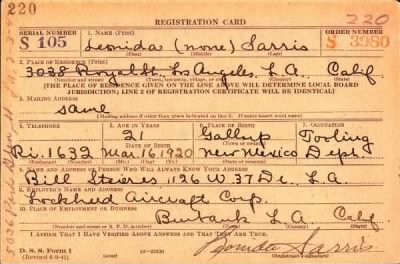 220
REGISTRATION CARD
220
SERIAL NUMBER
1. NAME (Print)
ORDER NUMBER
S 105
Leonida (none) Sarris
S 3980
2. PLACE OF RESIDENCE (Print)
3038 Royal St. Los Angeles, L.A. Calif
[THE PLACE OF RESIDENCE GIVEN ON THE LINE ABOVE WILL DETERMINE LOCAL BOARD
JURISDICTION; LINE 2 OF REGISTRATION CERTIFICATE WILL BE IDENTICAL]
3. MAILING ADDRESS
same
[Mailing address if other than place indicated on line 2. If same insert word same]
4. TELEPHONE
5. AGE IN YEARS
6. PLACE OF BIRTH
21
Gallup
Tooling
DATE OF BIRTH
Ri. 1632
Mar. 16 1920
New Mexico
Dept.
8. NAME AND ADDRESS OF PERSON WHO WILL ALWAYS KNOW YOUR ADDRESS
Bill Steares, 126 W. 37 Dr. L.A.
9. EMPLOYER'S NAME AND ADDRESS
Lockheed Aircraft Corp.
10. PLACE OF EMPLOYMENT OR BUSINESS
Burbank L.A. Calif.
I AFFIRM THAT I HAVE VERIFIED ABOVE ANSWERS AND THAT THEY ARE TRUE.
D. S. S. Form 1
(Revised 6-9-41)
Leonida Sarris